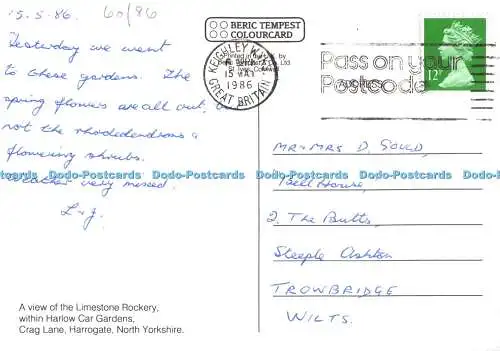 15.5.86. 60/86
Yesterday we went
to these gardens. The
spring flowers are all out,
not the rhododendrons &
flowering shrubs.
Weather very mixed.
L & J.
A view of the Limestone Rockery,
within Harlow Car Gardens,
Crag Lane, Harrogate, North Yorkshire.
BERIC TEMPEST
COLOURCARD
Printed in the U.K. by
KEIGHLEY W.
15 MAY
1986
GREAT BRITAIN
Pass on your
Postcode
12P
MR & MRS D. GOULD,
Bell House,
2, The Butts,
Steeple Ashton
TROWBRIDGE
WILTS.
Dodo-Postcards Dodo-Postcards Dodo-Postcards Dodo-Postcards Dodo-Postcards Dodo-Postcards